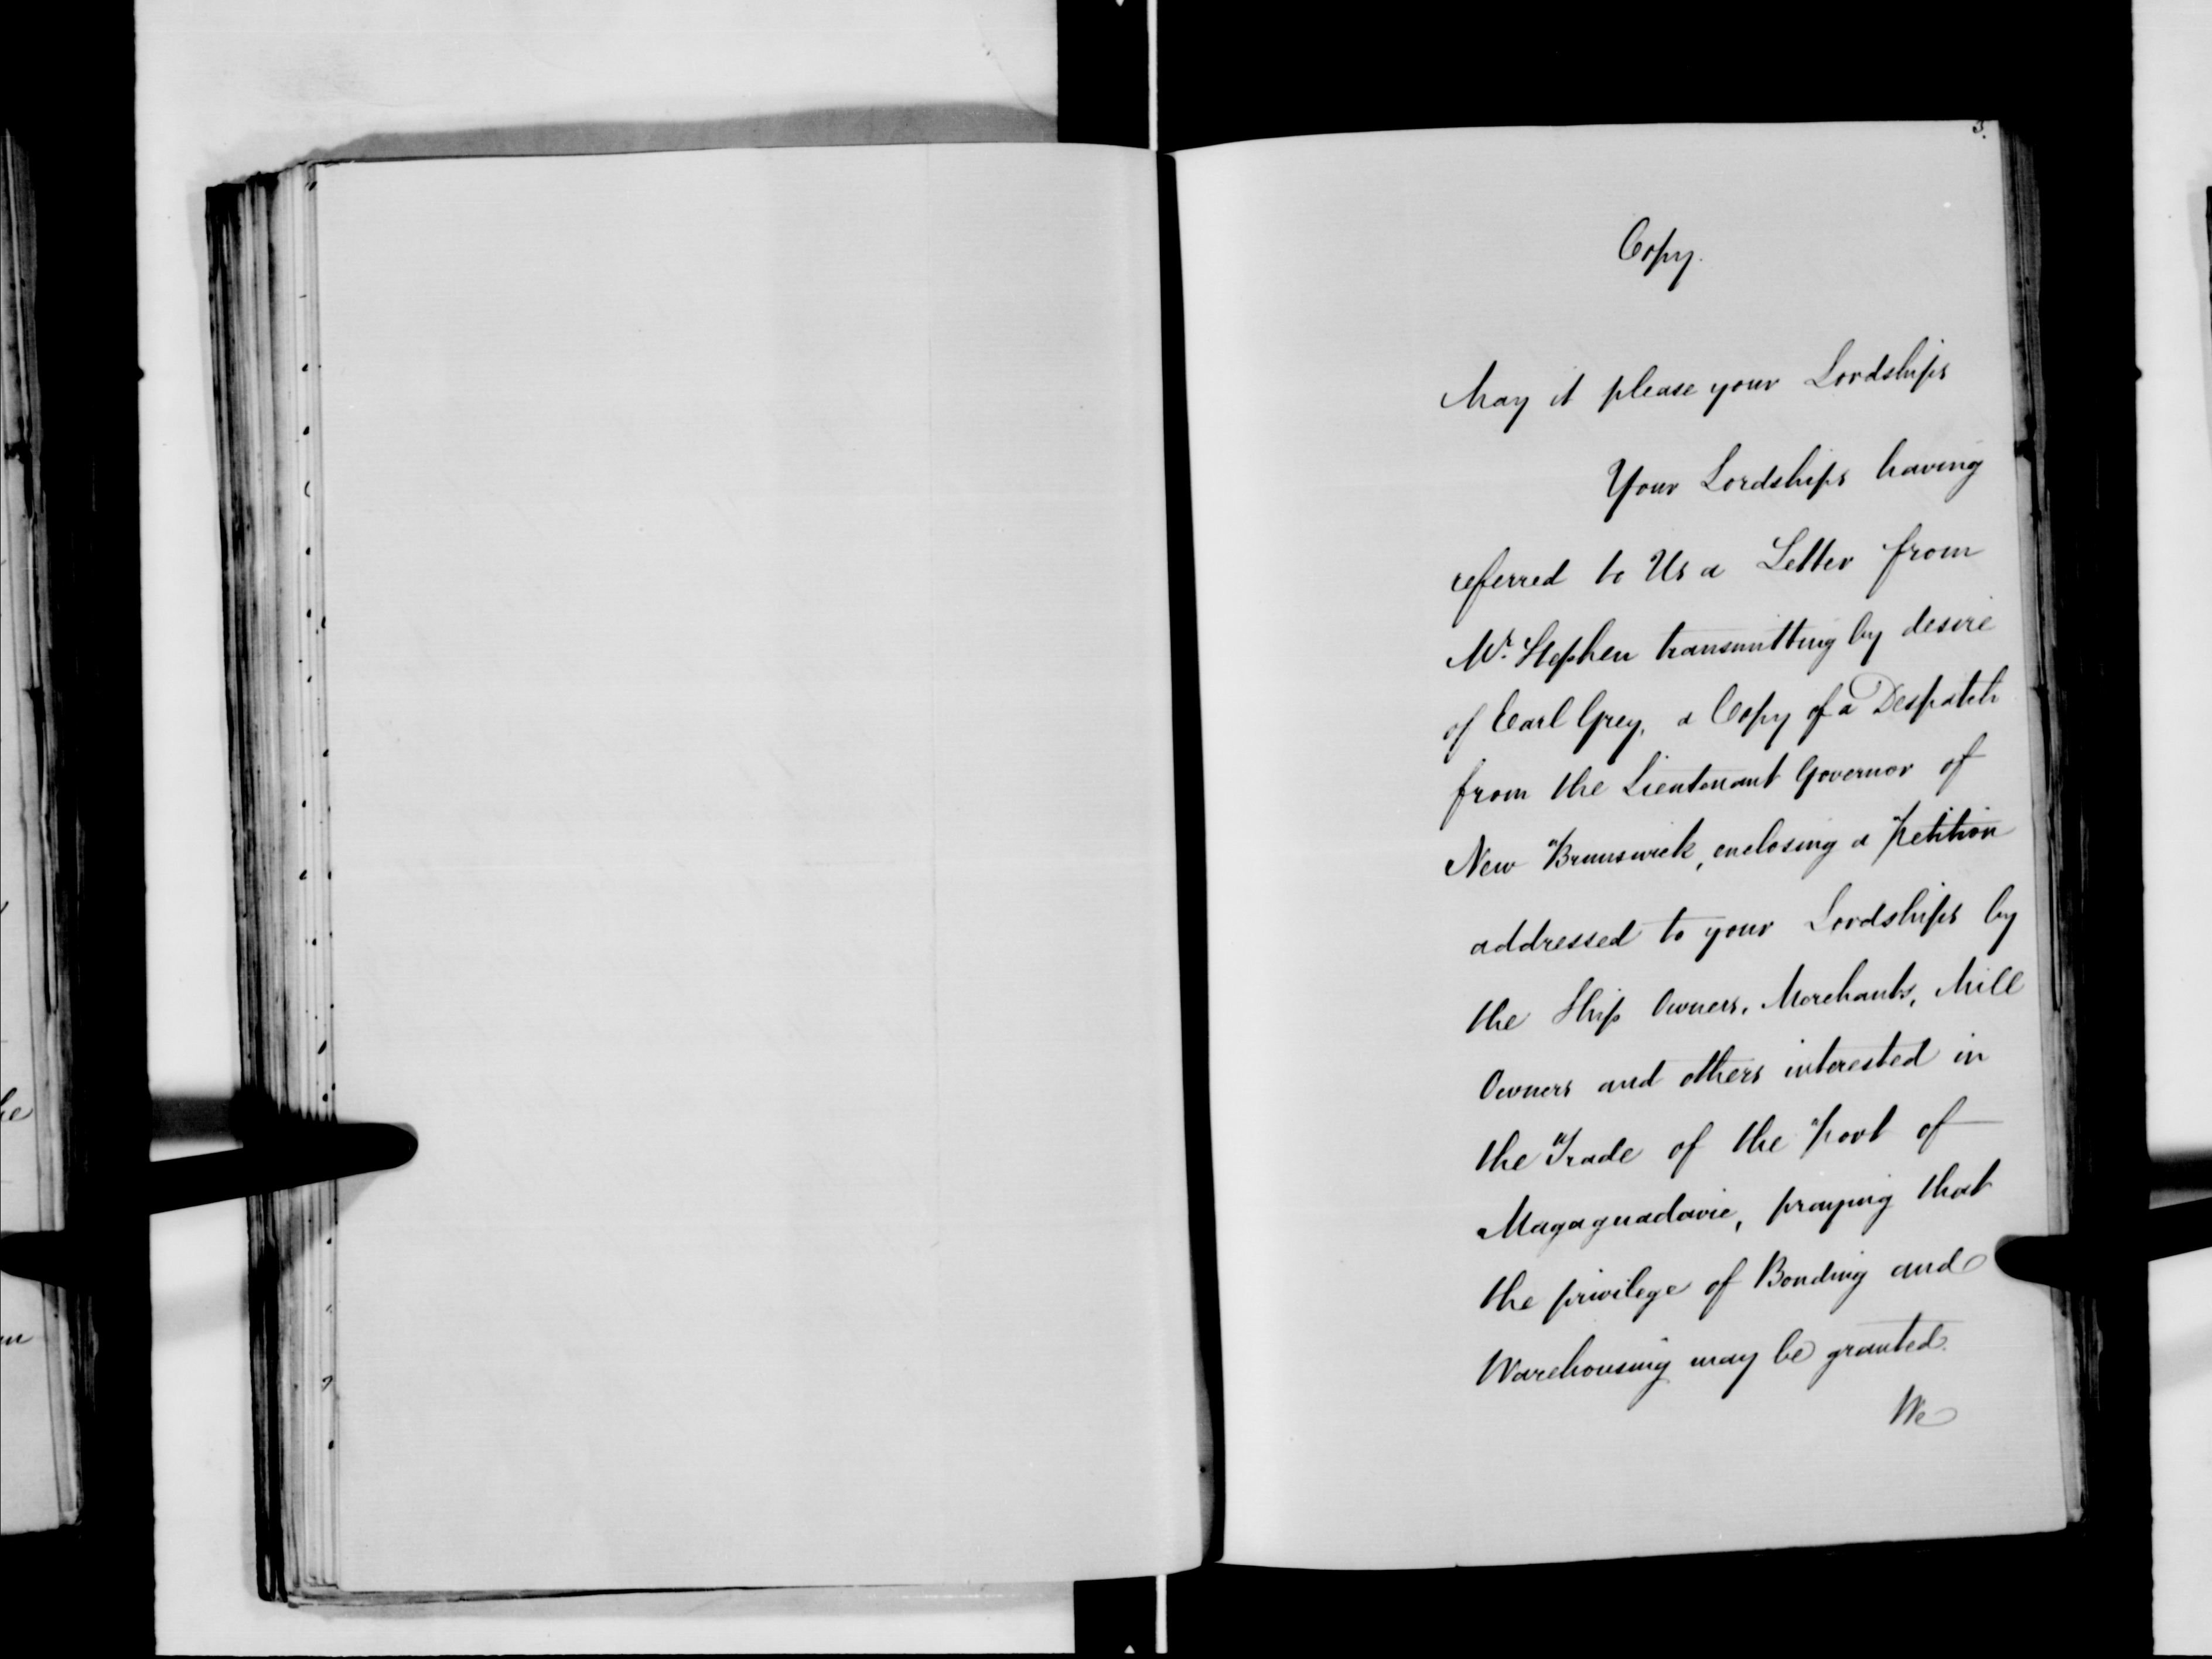 3.
Copy.
May it please your Lordships
Your Lordships having
referred to Us a Letter from
Mr. Stephen transmitting by desire
of Earl Grey, a Copy of a Despatch
from the Lieutenant Governor of
New Brunswick, enclosing a Petition
addressed to your Lordships by
the Ship Owners, Merchants, Mill
Owners and others interested in
the Trade of the Port of
Magaguadavic, praying that
the privilege of Bonding and
Warehousing may be granted.
We